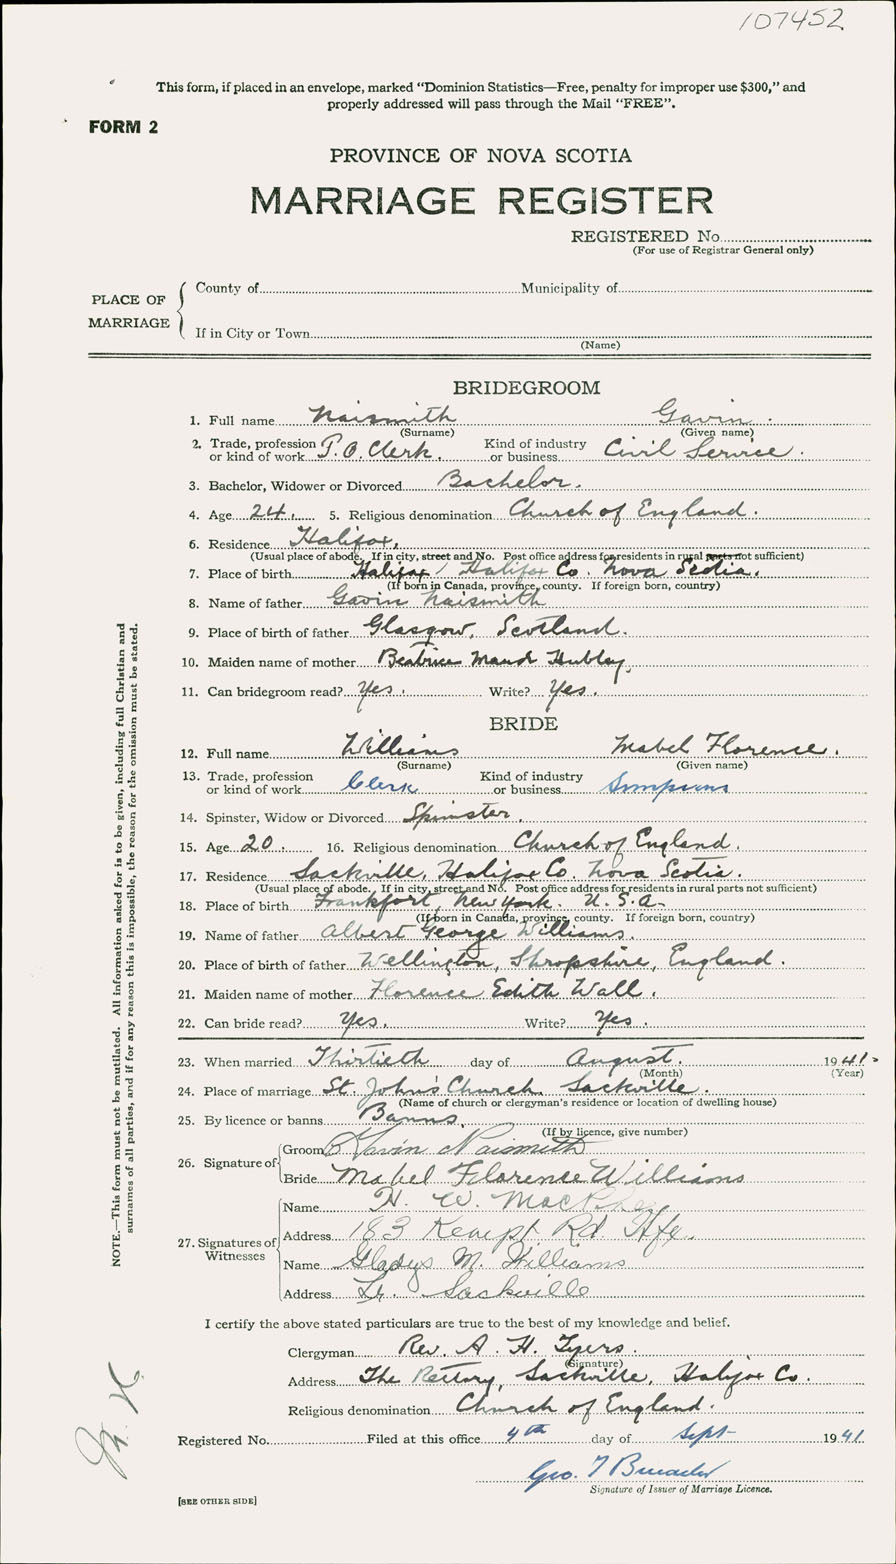 107452
This form, if placed in an envelope, marked "Dominion Statistics—Free, penalty for improper use $300," and
properly addressed will pass through the Mail "FREE".
FORM 2
PROVINCE OF NOVA SCOTIA
MARRIAGE REGISTER
REGISTERED No.
(For use of Registrar General only)
PLACE OF MARRIAGE
County of Municipality of
If in City or Town
(Name)
BRIDEGROOM
1. Full name Naismith Gavin.
(Surname) (Given name)
2. Trade, profession or kind of work P.O. Clerk. Kind of industry or business Civil Service.
3. Bachelor, Widower or Divorced Bachelor.
4. Age 24. 5. Religious denomination Church of England.
6. Residence Halifax.
(Usual place of abode. If in city, street and No. Post office address for residents in rural parts not sufficient)
7. Place of birth Halifax, Halifax Co. Nova Scotia.
(If born in Canada, province, county. If foreign born, country)
8. Name of father Gavin Naismith
9. Place of birth of father Glasgow, Scotland.
10. Maiden name of mother Beatrice Maud Hubley.
11. Can bridegroom read? Yes. Write? Yes.
BRIDE
12. Full name Williams Mabel Florence.
(Surname) (Given name)
13. Trade, profession or kind of work Clerk Kind of industry or business Simpsons
14. Spinster, Widow or Divorced Spinster.
15. Age 20. 16. Religious denomination Church of England.
17. Residence Sackville, Halifax Co. Nova Scotia.
(Usual place of abode. If in city, street and No. Post office address for residents in rural parts not sufficient)
18. Place of birth Frankfort, New York. U.S.A.
(If born in Canada, province, county. If foreign born, country)
19. Name of father Albert George Williams.
20. Place of birth of father Wellington, Shropshire, England.
21. Maiden name of mother Florence Edith Wall.
22. Can bride read? Yes. Write? Yes.
23. When married Thirtieth day of August. 1941.
(Month) (Year)
24. Place of marriage St. John's Church, Sackville.
(Name of church or clergyman's residence or location of dwelling house)
25. By licence or banns Banns.
(If by licence, give number)
26. Signature of
Groom Gavin Naismith
Bride Mabel Florence Williams
27. Signatures of Witnesses
Name H. W.
Address 183 Kempt Rd Hfx.
Name Gladys M. Williams
Address Lr. Sackville
I certify the above stated particulars are true to the best of my knowledge and belief.
Clergyman Rev. A. H. Tyers.
(Signature)
Address The Rectory, Sackville, Halifax Co.
Religious denomination Church of England.
Registered No. Filed at this office 4th day of Sept 1941
Geo. T
Signature of Issuer of Marriage Licence.
[SEE OTHER SIDE]
NOTE.—This form must not be mutilated. All information asked for is to be given, including full Christian and
surnames of all parties, and if for any reason this is impossible, the reason for the omission must be stated.